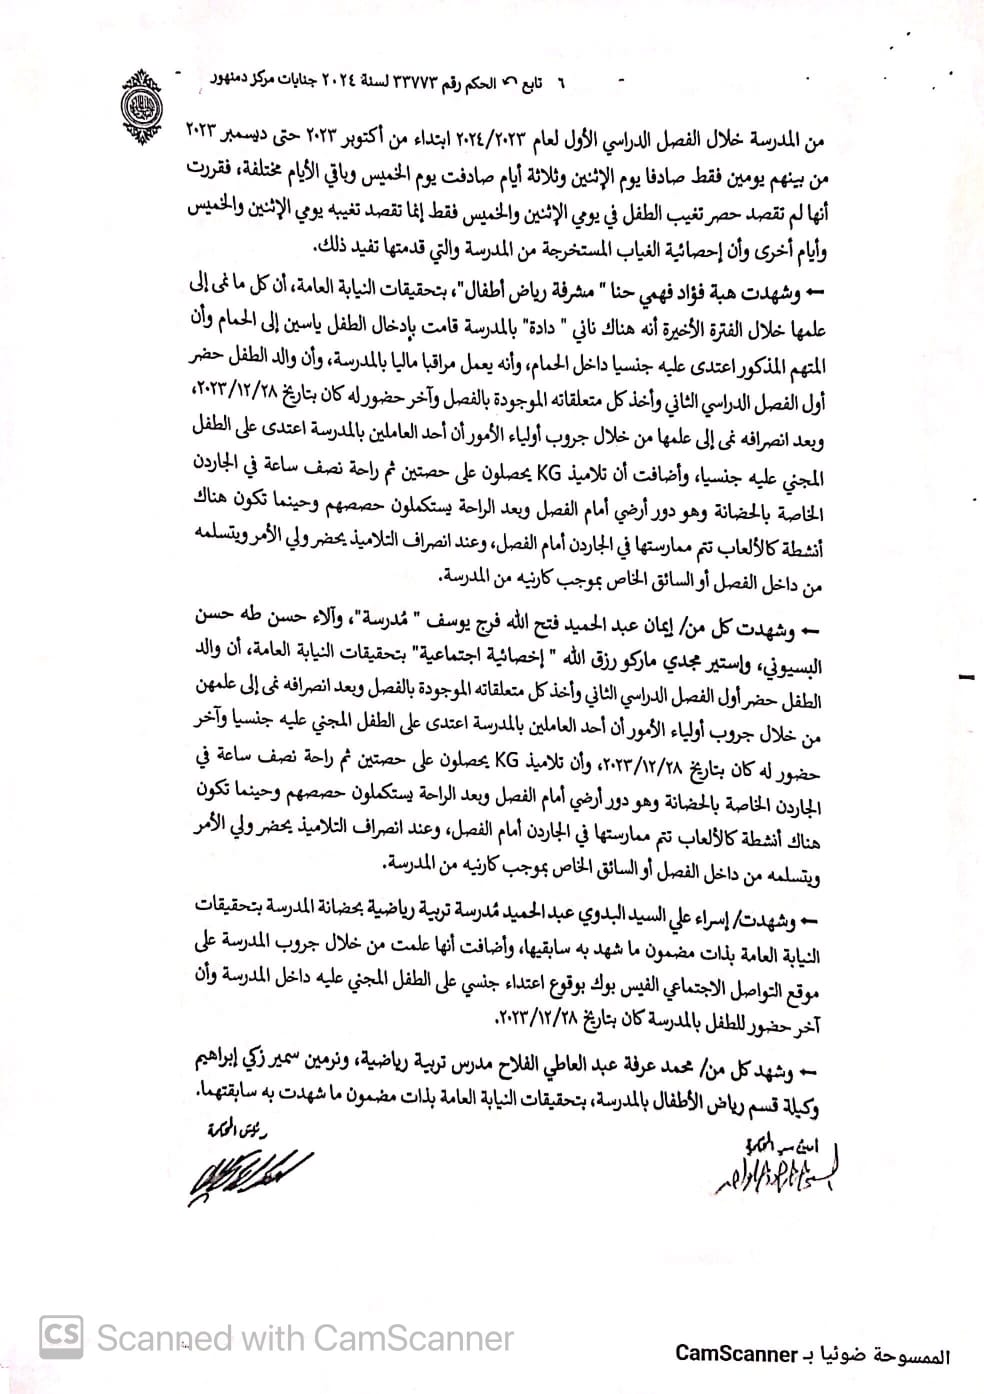 ٦ تابع الحكم رقم ٣٣٧٧٣ لسنة ٢٠٢٤ جنايات مركز دمنهور
من المدرسة خلال الفصل الدراسي الأول لعام ٢٠٢٤/٢٠٢٣ ابتداء من أكتوبر ٢٠٢٣ حتى ديسمبر ٢٠٢٣
من بينهم يومين فقط صادفا يوم الإثنين وثلاثة أيام صادفت يوم الخميس وباقي الأيام مختلفة، فقررت
أنها لم تقصد حصر تغيب الطفل في يومي الإثنين والخميس فقط إنما تقصد تغيبه يومي الإثنين والخميس
وأيام أخرى وأن إحصائية الغياب المستخرجة من المدرسة والتي قدمتها تفيد ذلك.
← وشهدت هبة فؤاد فهمي حنا " مشرفة رياض أطفال"، بتحقيقات النيابة العامة، أن كل ما نمى إلى
علمها خلال الفترة الأخيرة أنه هناك ناني " دادة" بالمدرسة قامت بإدخال الطفل ياسين إلى الحمام وأن
المتهم المذكور اعتدى عليه جنسيا داخل الحمام، وأنه يعمل مراقبا ماليا بالمدرسة، وأن والد الطفل حضر
أول الفصل الدراسي الثاني وأخذ كل متعلقاته الموجودة بالفصل وآخر حضور له كان بتاريخ ٢٠٢٣/١٢/٢٨،
وبعد انصرافه نمى إلى علمها من خلال جروب أولياء الأمور أن أحد العاملين بالمدرسة اعتدى على الطفل
المجني عليه جنسيا، وأضافت أن تلاميذ KG يحصلون على حصتين ثم راحة نصف ساعة في الجاردن
الخاصة بالحضانة وهو دور أرضي أمام الفصل وبعد الراحة يستكملون حصصهم وحينما تكون هناك
أنشطة كالألعاب تتم ممارستها في الجاردن أمام الفصل، وعند انصراف التلاميذ يحضر ولي الأمر ويتسلمه
من داخل الفصل أو السائق الخاص بموجب كارنيه من المدرسة.
← وشهدت كل من/ إيمان عبد الحميد فتح الله فرج يوسف " مُدرسة"، وآلاء حسن طه حسن
البسيوني، وإستير مجدي ماركو رزق الله " إخصائية اجتماعية" بتحقيقات النيابة العامة، أن والد
الطفل حضر أول الفصل الدراسي الثاني وأخذ كل متعلقاته الموجودة بالفصل وبعد انصرافه نمى إلى علمهن
من خلال جروب أولياء الأمور أن أحد العاملين بالمدرسة اعتدى على الطفل المجني عليه جنسيا وآخر
حضور له كان بتاريخ ٢٠٢٣/١٢/٢٨، وأن تلاميذ KG يحصلون على حصتين ثم راحة نصف ساعة في
الجاردن الخاصة بالحضانة وهو دور أرضي أمام الفصل وبعد الراحة يستكملون حصصهم وحينما تكون
هناك أنشطة كالألعاب تتم ممارستها في الجاردن أمام الفصل، وعند انصراف التلاميذ يحضر ولي الأمر
ويتسلمه من داخل الفصل أو السائق الخاص بموجب كارنيه من المدرسة.
← وشهدت/ إسراء علي السيد البدوي عبد الحميد مُدرسة تربية رياضية بحضانة المدرسة بتحقيقات
النيابة العامة بذات مضمون ما شهد به سابقيها، وأضافت أنها علمت من خلال جروب المدرسة على
موقع التواصل الاجتماعي الفيس بوك بوقوع اعتداء جنسي على الطفل المجني عليه داخل المدرسة وأن
آخر حضور للطفل بالمدرسة كان بتاريخ ٢٠٢٣/١٢/٢٨.
← وشهد كل من/ محمد عرفة عبد العاطي الفلاح مدرس تربية رياضية، ونرمين سمير زكي إبراهيم
وكيلة قسم رياض الأطفال بالمدرسة، بتحقيقات النيابة العامة بذات مضمون ما شهدت به سابقتهما.
أمين سر المحكمة
رئيس المحكمة
CS Scanned with CamScanner
الممسوحة ضوئيا بـ CamScanner